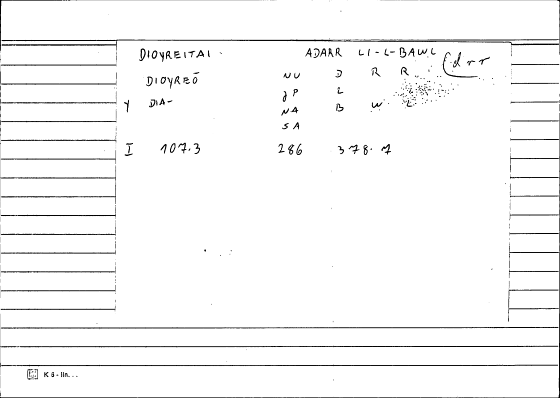 DIOYREITAI. ADARR LI-L-BAWL (drr
DIOYREŌ NU D R R
Y DIA- gP L
NA B W L
SA
I 107.3 286 378.7
K 6 - lin...